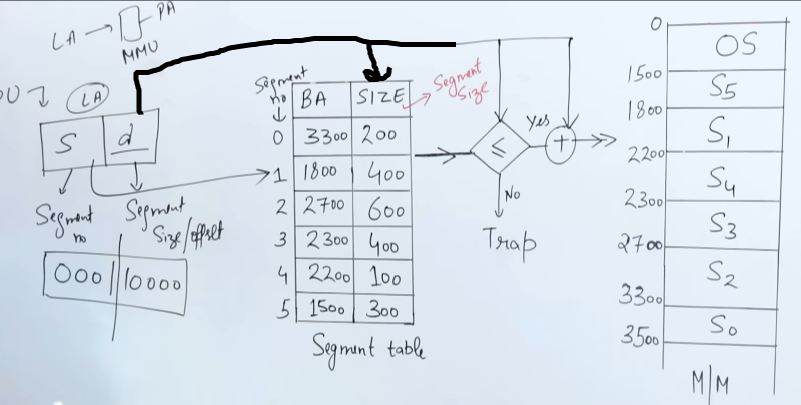 LA → PA
MMU
LA
S d
Segment no
Segment Size/offset
000 10000
Segment no
BA SIZE
Segment Size
0 3300 200
1 1800 400
2 2700 600
3 2300 400
4 2200 100
5 1500 300
Segment table
≤
yes
+
No
Trap
0
OS
1500
S5
1800
S1
2200
S4
2300
S3
2700
S2
3300
S0
3500
M|M